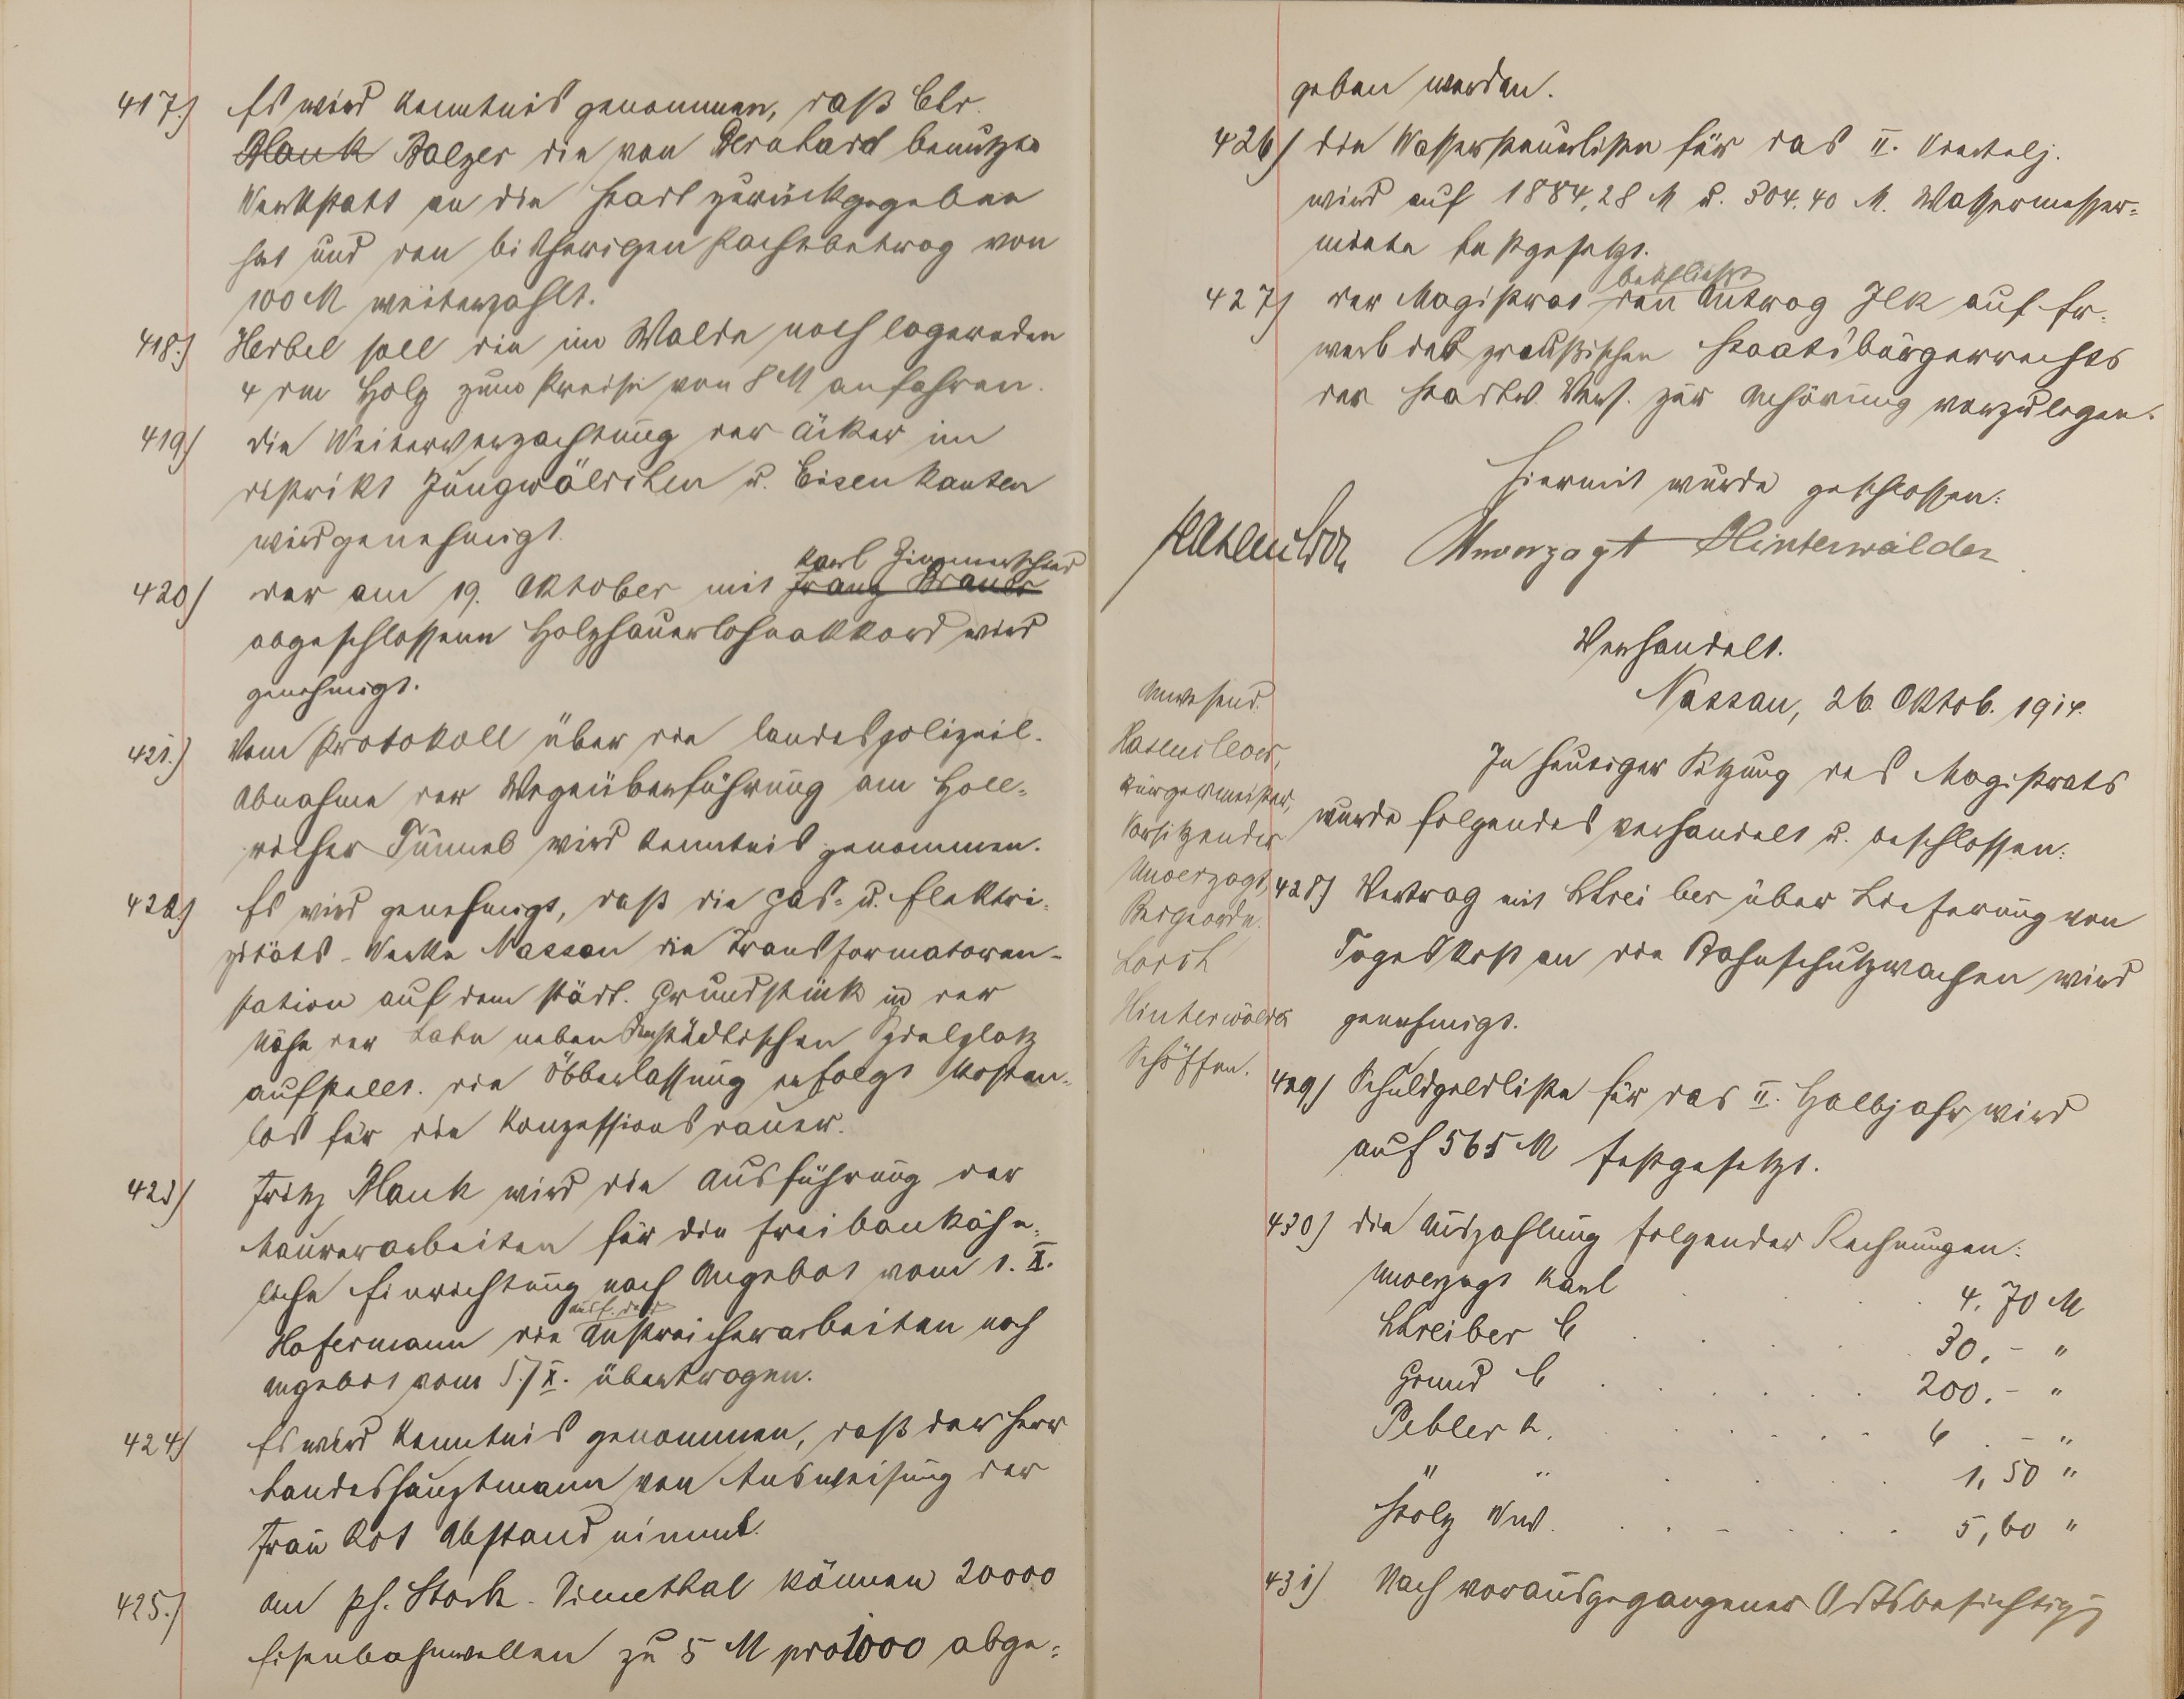 417.) Es wird Kenntnis genommen, daß Chr.
Plank Balzer die von Bernhard benutzte
Werkstatt an die Stadt zurückgegeben
hat und den bisherigen Pachtbetrag von
100 M weiterzahlt.
418.) Herbel soll die im Walde noch lagernden
4 rm Holz zum Preise von 8 M anfahren.
419) Die Weiterverpachtung der Äcker im
Distrikt Jungwäldchen u. Eisenkauten
wird genehmigt.
Karl Zimmerschied
420) Der am 19. Oktober mit Franz Brauer
abgeschlossene Holzhauerlohnakkord wird
genehmigt.
421.) Vom Protokoll über die landespolizeil.
Abnahme der Wegeüberführung am Holl=
richer Tunnel wird Kenntnis genommen.
422) Es wird genehmigt, daß die Gas- u. Elektri=
zitäts-Werke Nassau die Transformatoren-
station auf dem städt. Grundstück in der
Nähe der Lahn neben dem städtischen Spielplatz
aufstellt. Die Überlassung erfolgt kosten=
los für die Konzessionsdauer.
423) Fritz Plank wird die Ausführung der
Maurerarbeiten für die Freibank
liche Einrichtung nach Angebot vom 1. X.
Ausf. der
Hofermann die Anstreicherarbeiten nach
Angebot vom 5./X. übertragen.
424) Es wird Kenntnis genommen, daß der Herr
Landeshauptmann von Ausweisung der
Frau Abstand nimmt.
425.) An Ph. Stork-Dienethal können 20000
Eisenbahnwellen zu 5 M pro 1000 abge=
geben werden.
426) Die Wassersteuerliste für das II. Viertelj.
wird auf 1884,28 M u. 304.40 M. Wassermesser=
miete festgesetzt.
beschließt
427) Der Magistrat den Antrag Ilk auf Er=
werb des preußischen Staatsbürgerrechts
der Stadtv. Vers. zur Anhörung vorzulegen.
Hiermit wurde geschlossen:
Hasenclever Unverzagt Hinterwälder
Verhandelt.
Nassau, 26. Oktob. 1914.
Anwesend:
Hasenclever,
Bürgermeister,
Vorsitzender
Unverzagt,
Beigeordn.
Lorch
Hinterwälder
Schöffen.
In heutiger Sitzung des Magistrats
wurde folgendes verhandelt u. beschlossen:
428) Vertrag mit Schreiber über Lieferung von
Tageskost an die Bahnschutzwachen wird
genehmigt.
429) Schuldgeldliste für das II. Halbjahr wird
auf 565 M festgesetzt.
430) Die Auszahlung folgender Rechnungen:
Unverzagt Karl . . . 4,70 M
Schreiber C . . . 30,- "
Grund C . . . . . 200.- "
Pebler A. . . . . . . 6.- "
" " . . 1,50 "
Stolz Ww. . . - . . . 5,60 "
431) Nach vorausgegangener Ortsbesichtigung